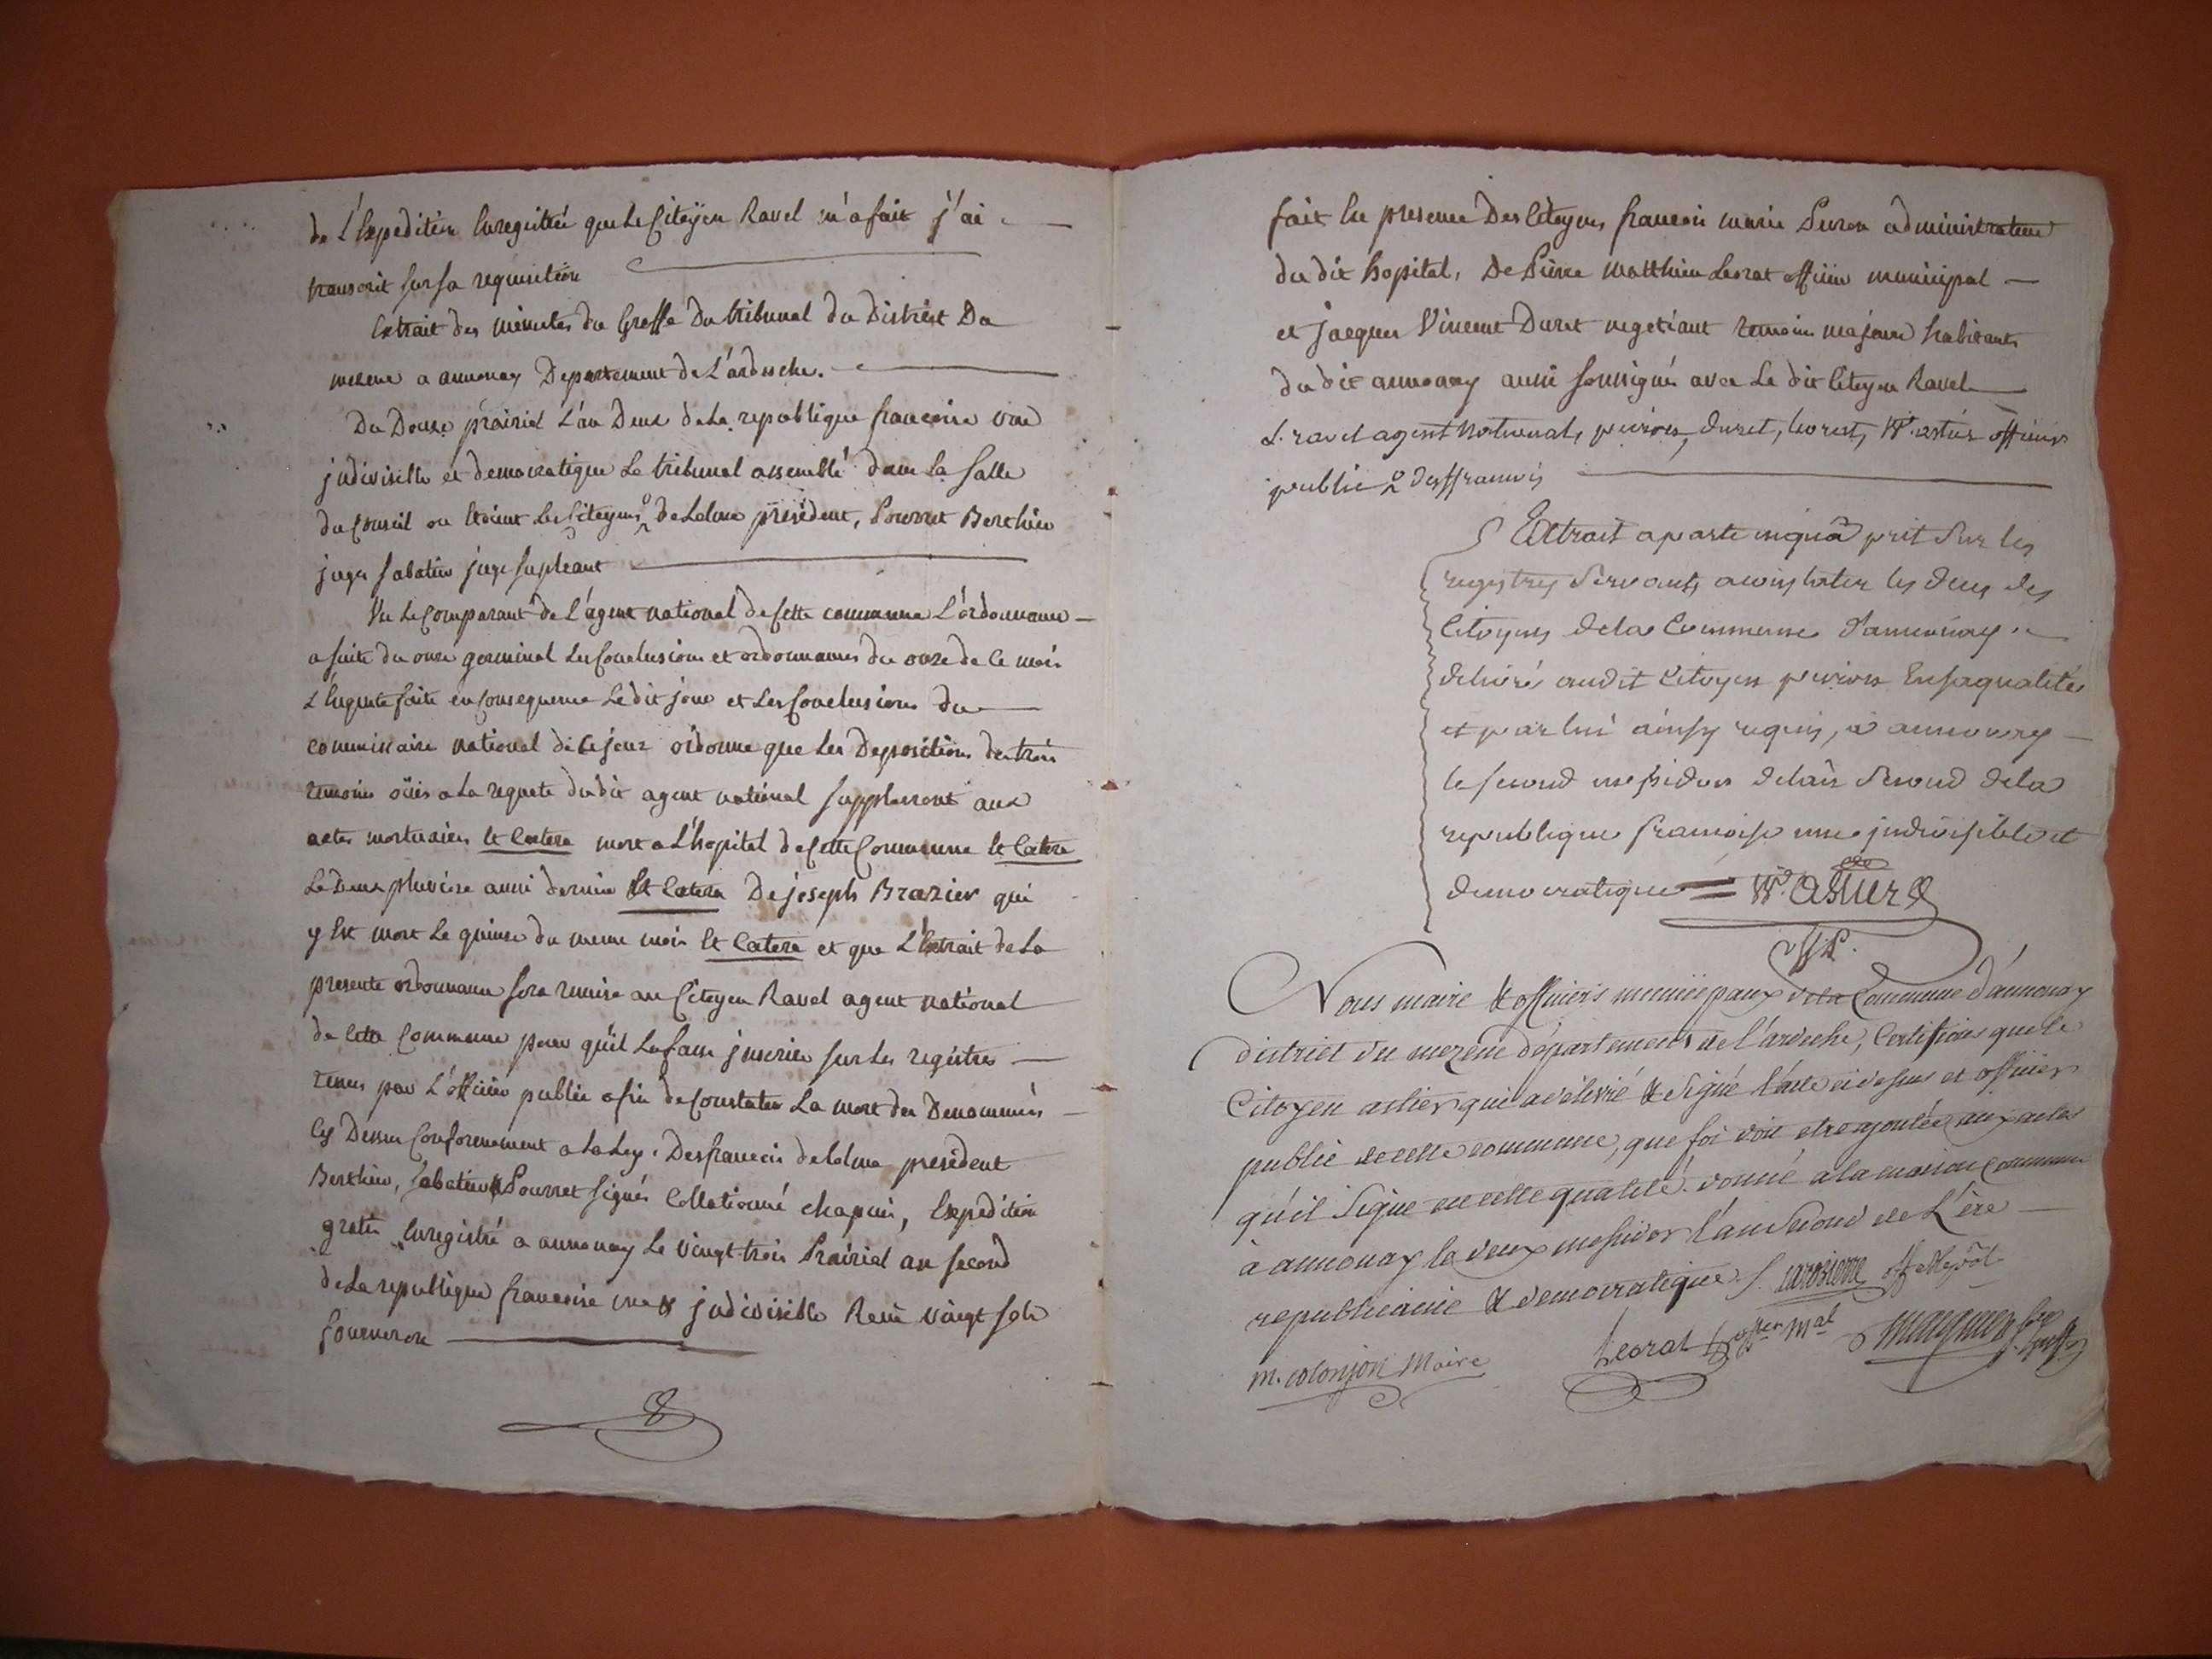 de L'Expedition Enregistrée que Le Citoyen Ravel m'a fait j'ai
transcrit sur sa requisition
Extrait des minutes du Greffe Du tribunal du District Du
mezenc a annonay Departement de L'ardeche.
Du Douze prairial L'an Deux de La republique francoise une
indivisible et democratique Le tribunal assemblé dans La Salle
du Conseil ou Etoient Les Citoyens deLolme président, Pourret Berthieu
juges Sabatier juge supleant
Vu Le Comparant de L'agent national de Cette commune L'ordonnance
a suite du onze germinal Les Conclusions et ordonnances du onze de Ce mois
L'Enquete faite en Consequence Le dit jour et Les Conclusions du
commissaire national de Ce jour ordonne que Les Depositions des trois
temoins oüies a La requete du dit agent national supplerront aux
actes mortuaires Et Cætera mort a L'hopital de Cette Commune Et Cætera
Le Deux pluviose aussi dernier Et Cætera De joseph Brazier qui
y Est mort Le quinze du meme mois Et Cætera et que L'Extrait de La
presente ordonnance sera remise au Citoyen Ravel agent national
de Cette Commune pour qu'il La fasse jnscrire sur Les registres
tenus par L'officier public afin de Constater La mort des Denommés
Cy Dessus Conformement a La Loy. Desfrancois deLolme president
Berthieu, Sabatier & Pourret signés Collationné chapuis, Expedition
gratis Enregistré a annonay Le vingt trois Prairial an second
de La republique francoise une & jndivisible Recu vingt sols
fourneron
fait En presence Des Citoyens francois marie Peuron administrateur
du dit hopital, De Pierre Matthieu Leorat officier municipal
et jacques Vincent Duret negotiant temoins majeurs habitants
du dit annonay aussi soussignés avec Le dit Citoyen Ravel
L. ravel agent National, peuron, duret, leorat, astier officier
public desfrancois
Extrait aparte inqua prit Sur les
registres Servants a constater les deces des
Citoyens dela Commune d'annonay
delivré audit Citoyen peuron En sa qualité
et par lui ainsy requis, a annonay
le second messidor delan Second dela
republique francoise une jndivisible et
democratique = astier
Nous maire & officiers municipaux dela Commune d'annonay
district du mezenc departement de l'ardeche, Certifions que le
Citoyen astier qui a délivré & signé l'acte ci dessus est officier
public de cette commune, que foi doit etre ajoutée aux actes
qu'il signe en cette qualité. donné a la maison Commune
à annonay le deux messidor l'an second de L'ère
republicaine & democratique
m. colonjon Maire
Leorat off.er M.al